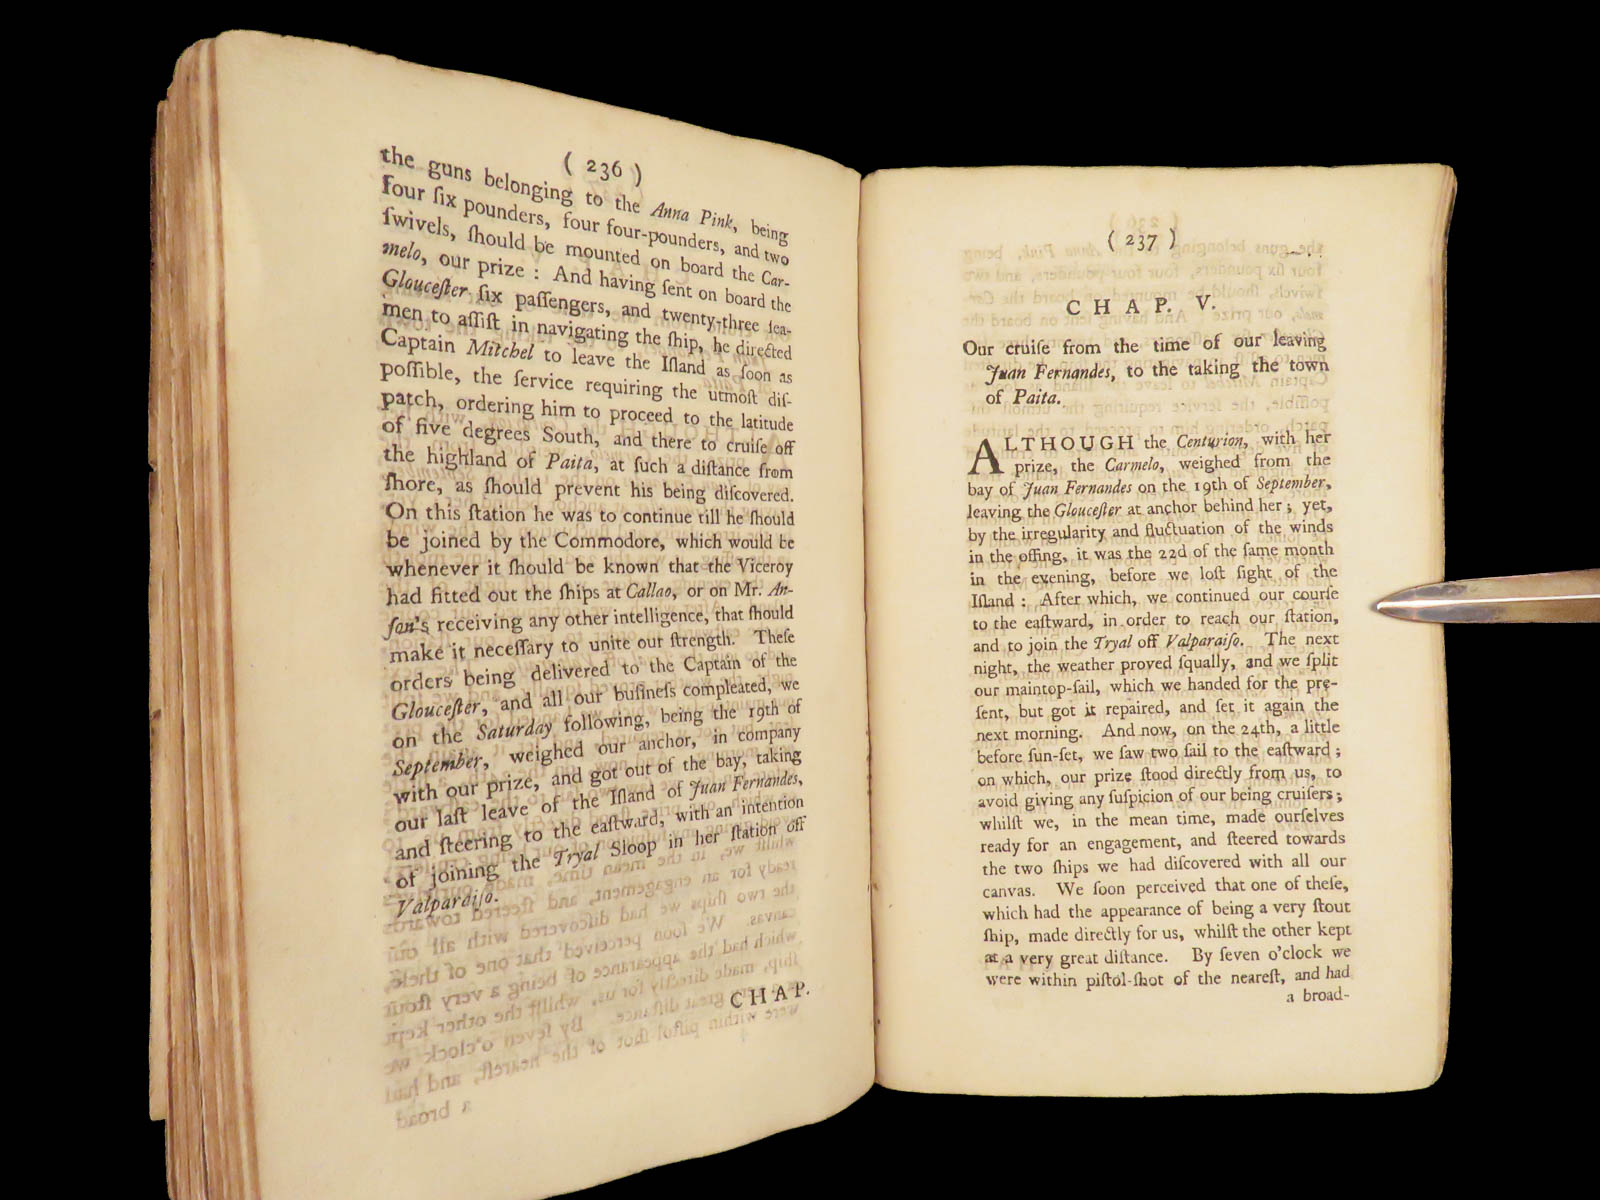 ( 236 )
the guns belonging to the Anna Pink, being
four ſix pounders, four four-pounders, and two
ſwivels, ſhould be mounted on board the Car-
melo, our prize : And having ſent on board the
Glouceſter ſix paſſengers, and twenty-three ſea-
men to aſſiſt in navigating the ſhip, he directed
Captain Mitchel to leave the Iſland as ſoon as
poſſible, the ſervice requiring the utmoſt diſ-
patch, ordering him to proceed to the latitude
of five degrees South, and there to cruiſe off
the highland of Paita, at ſuch a diſtance from
ſhore, as ſhould prevent his being diſcovered.
On this ſtation he was to continue till he ſhould
be joined by the Commodore, which would be
whenever it ſhould be known that the Viceroy
had fitted out the ſhips at Callao, or on Mr. An-
ſon's receiving any other intelligence, that ſhould
make it neceſſary to unite our ſtrength. Theſe
orders being delivered to the Captain of the
Glouceſter, and all our buſineſs compleated, we
on the Saturday following, being the 19th of
September, weighed our anchor, in company
with our prize, and got out of the bay, taking
our laſt leave of the Iſland of Juan Fernandes,
and ſteering to the eaſtward, with an intention
of joining the Tryal Sloop in her ſtation off
Valparaiſo.
CHAP.
( 237 )
CHAP. V.
Our cruiſe from the time of our leaving
Juan Fernandes, to the taking the town
of Paita.
ALTHOUGH the Centurion, with her
prize, the Carmelo, weighed from the
bay of Juan Fernandes on the 19th of September,
leaving the Glouceſter at anchor behind her ; yet,
by the irregularity and fluctuation of the winds
in the offing, it was the 22d of the ſame month
in the evening, before we loſt ſight of the
Iſland : After which, we continued our courſe
to the eaſtward, in order to reach our ſtation,
and to join the Tryal off Valparaiſo. The next
night, the weather proved ſqually, and we ſplit
our maintop-ſail, which we handed for the pre-
ſent, but got it repaired, and ſet it again the
next morning. And now, on the 24th, a little
before ſun-ſet, we ſaw two ſail to the eaſtward ;
on which, our prize ſtood directly from us, to
avoid giving any ſuſpicion of our being cruiſers ;
whilſt we, in the mean time, made ourſelves
ready for an engagement, and ſteered towards
the two ſhips we had diſcovered with all our
canvas. We ſoon perceived that one of theſe,
which had the appearance of being a very ſtout
ſhip, made directly for us, whilſt the other kept
at a very great diſtance. By ſeven o'clock we
were within piſtol-ſhot of the neareſt, and had
a broad-